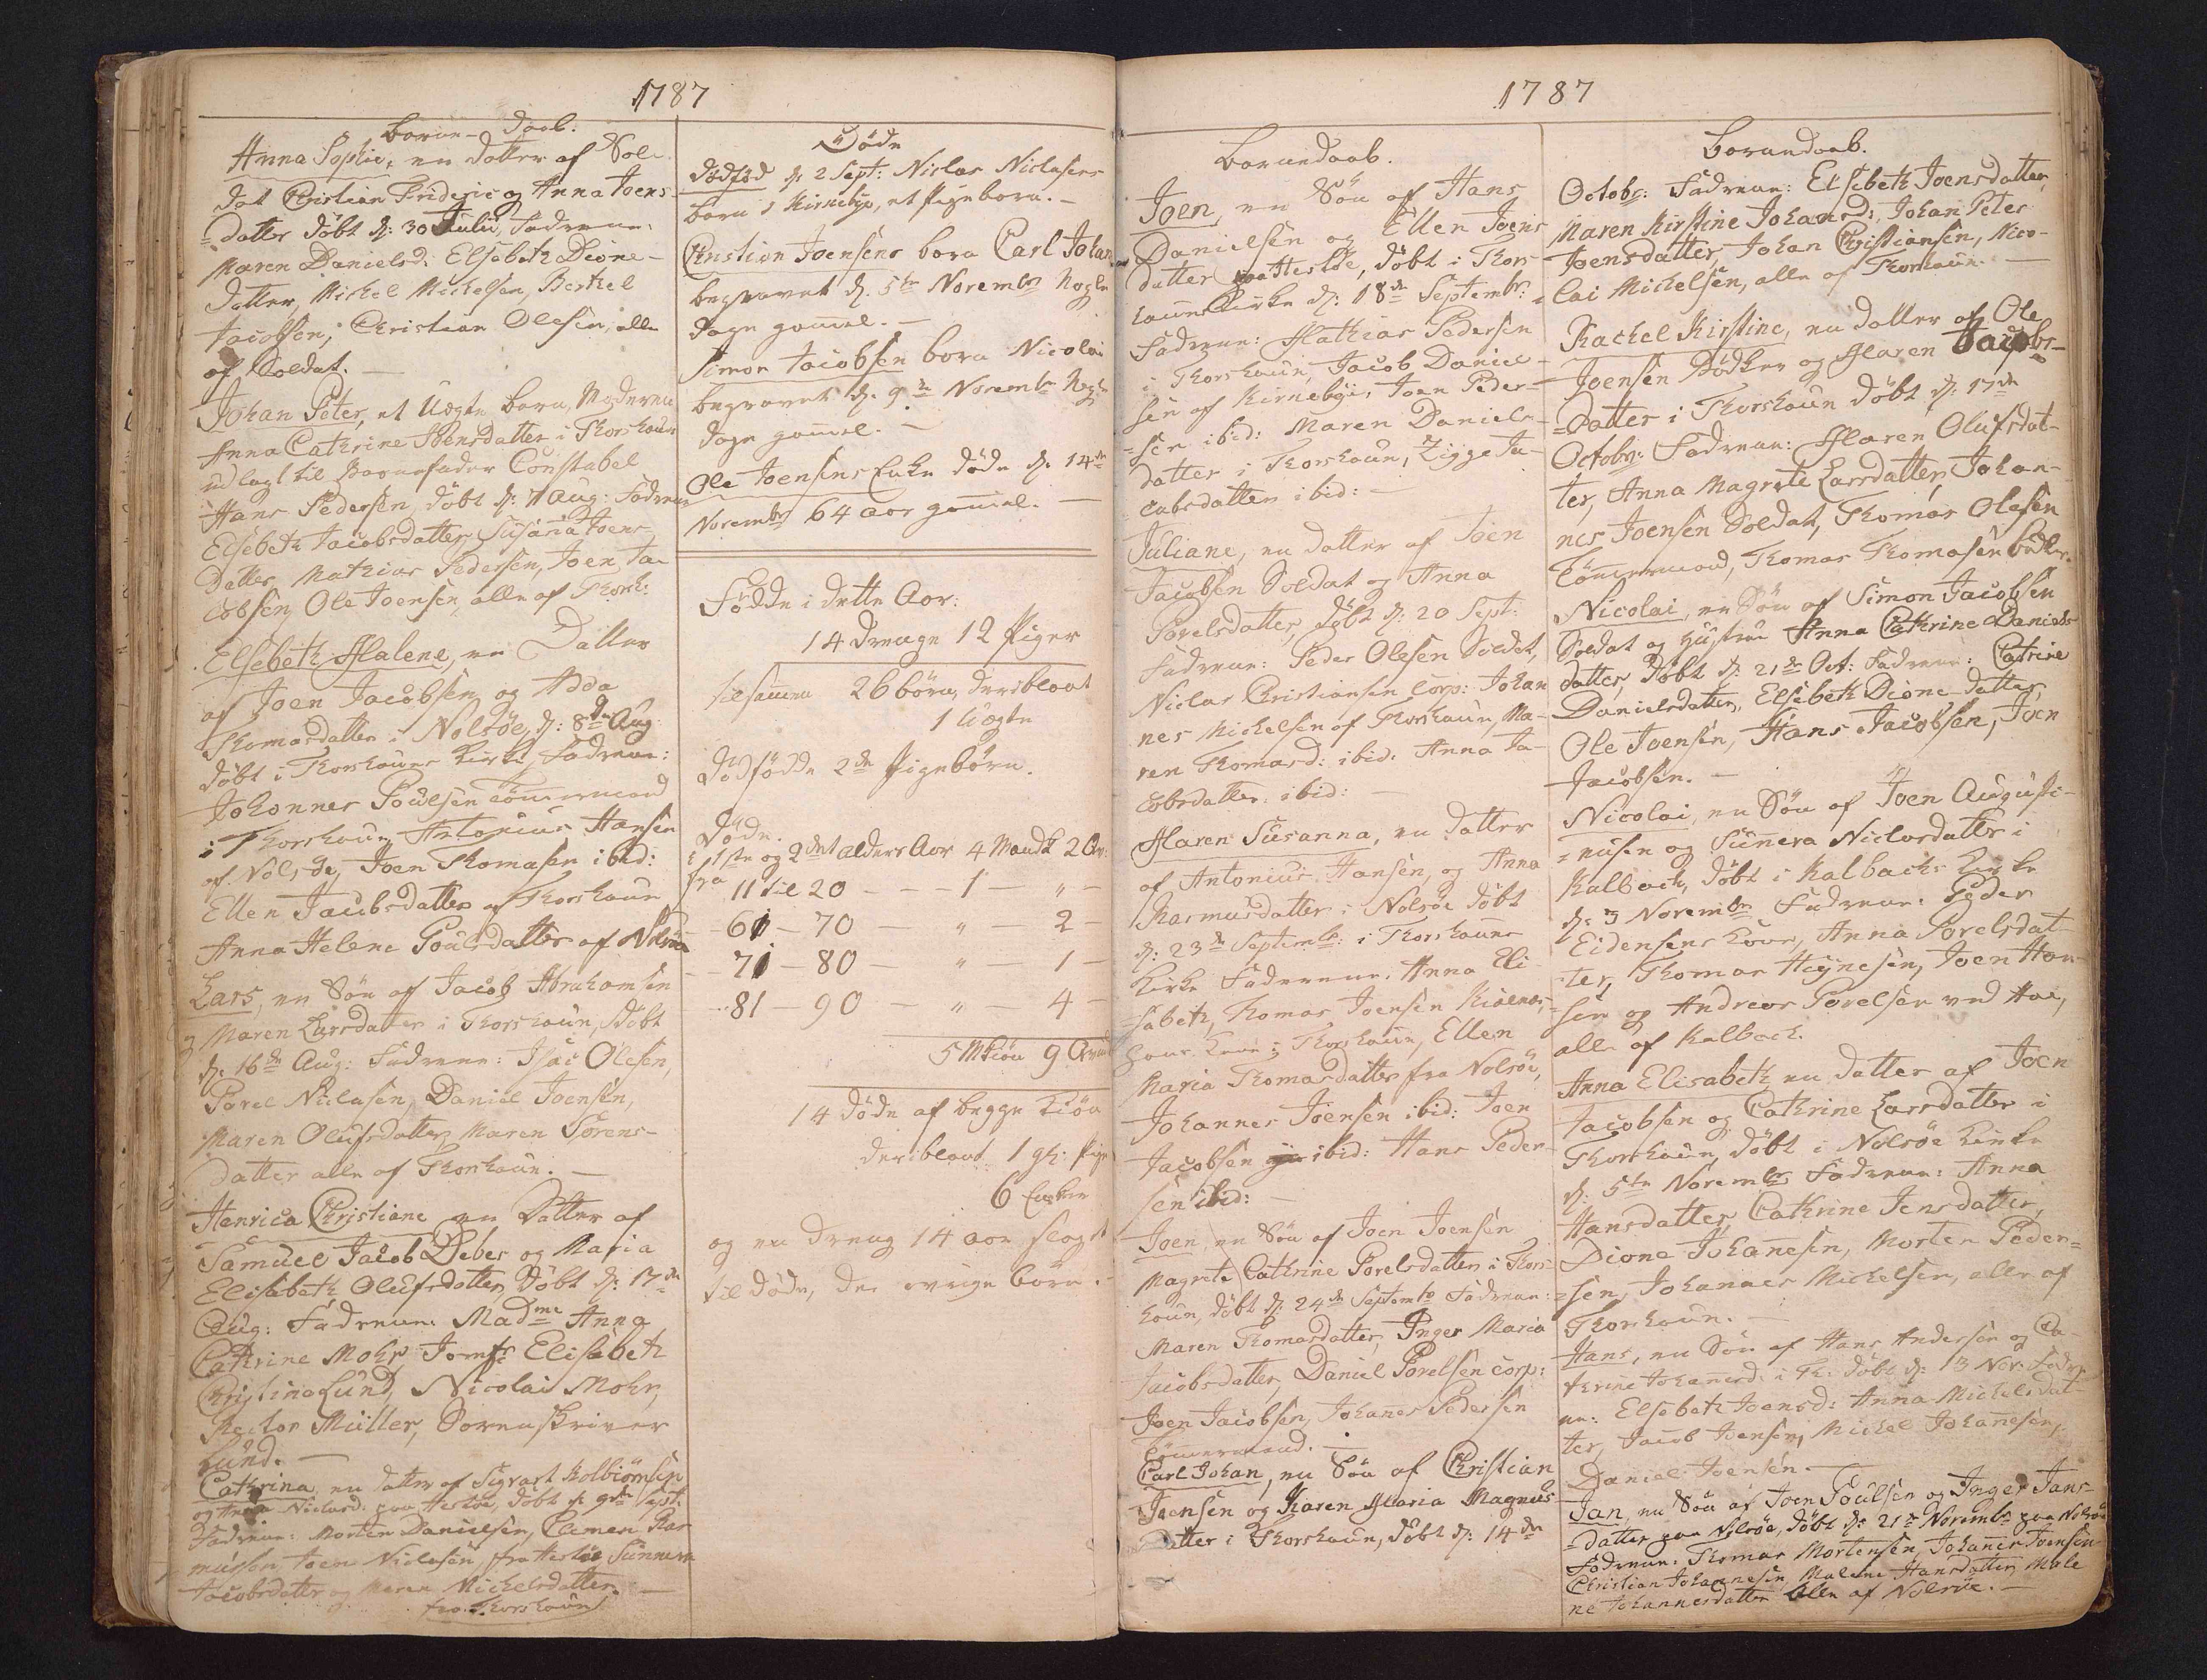 1787
Børne-Daab.
Anna Sophie, en datter af Sol-
dat Christian Frideric og Anna Joens
=datter døbt d: 30 Julii, Fadrene:
Maren Danielsd: Elsebeth Dione-
datter, Michel Michelsen, Berthel
Jacobsen, Christian Olesen, alle
af Soldat.
Johan Peter, et Uægte barn, Moderen
Anna Cathrine Joensdatter i Thorshaun
udlagt til Barnefader Constabel
Hans Pedersen, døbt d: 7 Aug: Fadrene
Elsebeth Jacobsdatter, Susanna Joens
datter, Mathias Pedersen, Joen Ja-
cobsen, Ole Joensen, alle af Thorsh:
Elsebeth Malene, en Datter
af Joen Jacobsen og Adda
Thomasdatter i Nolsöe, d: 8de Aug
døbt i Thorshauns Kirke, Fadrene:
Johannes Poulsen Tømmermand
i Thorshaun Antonius Hansen
af Nolsöe, Joen Thomasen ibid:
Ellen Jacobsdatter af Thorshaun
Anna Helene Poulsdatter af Nolsöe
Lars, en Søn af Jacob Abrahamsen
og Maren Larsdatter i Thorshaun, døbt
d: 16de Aug: Fadrene: Isac Olesen,
Povel Niclasen, Daniel Joensen,
Maren Olufsdatter, Maren Sörens-
datter alle af Thorshaun.
Henrica Christiane en Datter af
Samuel Jacob Debes og Maria
Elisabeth Olufsdatter, døbt d: 17de
Aug: Fadrene: Madme Anna
Cathrine Mohr, Jomfr Elisabeth
Christina Lund, Nicolai Mohr,
Rector Müller, Sorenskriver
Lund.
Cathrina en datter af Sigvart Kolbiörnsen
og Anna Niclasd: paa Hestöe, døbt d: 9de Sept:
Fadrene: Morten Danielsen, Clemen Ras
musen Joen Niclasen, fra Hestöe Sunneva
Jacobsdatter og Maren Michelsdatter
fra Thorshaun
Døde
dødfød d: 2 Sept: Niclas Niclasens
barn i Kirkebye, et Pigebarn.
Christian Joensens barn Carl Johan
begravet d. 5te Novembr Nogle
dage gamel.
Simon Jacobsens barn Nicolai
begravet d. 9de Novembr Nogle
dage gamel.
Ole Joensens Enke døde d. 14de
Novembr 64 aar gamel.
Fødde i dette Aar:
14 drenge 12 Piger
tilsammen 26 børn, deriblant
1 Uægte
Dødfødde 2de Pigebørn.
Døde.
i 1ste og 2det alders Aar 4 Mandk 2 Qv:
fra 11 til 20 - - - 1 - " -
61 - 70 - " - 2 -
71 - 80 - " - 1 -
81 - 90 - " - 4 -
5 Mkiön 9 Qvind
14 døde af begge kiön
deriblant 1 gl: Pige
6 Enker
og en dreng 14 aar slagt
til døde, de øvrige børn.
1787
Børnedaab.
Joen, en Søn af Hans
Danielsen og Ellen Joens
datter paa Hestöe, døbt i Thors-
hauns Kirke d: 18de Septembr:
Fadrene: Mathias Pedersen
i Thorshaun, Jacob Daniel-
sen af Kirkebye, Joen Peder-
=sen ibid: Maren Daniels-
datter i Thorshaun, Zigge Ja-
cobsdatter ibid:
Juliane, en datter af Joen
Jacobsen Soldat og Anna
Povelsdatter, døbt d: 20 Sept:
Fadrene: Peder Olesen Soldat,
Niclas Christiansen Corp: Johan
nes Michelsen af Thorshaun, Ma-
ren Thomasd: ibid: Anna Ja-
cobsdatter: ibid:
Maren Susanna, en datter
af Antonius Hansen, og Anna
Rasmusdatter i Nolsöe døbt
d: 23de Septembr: i Thorshauns
Kirke Fadrene: Anna Eli-
=sabeth, Thomas Joensen
Kone i Thorshaun, Ellen
Maria Thomasdatter fra Nolsöe,
Johannes Joensen ibid: Joen
Jacobsen ibid: Hans Peder-
sen ibid:
Joen en Søn af Joen Joensen
Magrete Cathrine Povelsdatter i Thors-
haun, døbt d: 24de Septembr Fadrene:
Maren Thomasdatter, Inger Maria
Jacobsdatter, Daniel Povelsen corp:
Joen Jacobsen, Johanes Pedersen
Tømmermand.
Carl Johan, en Søn af Christian
Joensen og Karen Maria Magnus
Datter i Thorshaun, døbt d: 14de
Børnedaab.
Octobr: Fadrene: Elsebeth Joensdatter,
Maren Kirstine Johansd:, Johan Peter
Joensdatter, Johan Christiansen, Nico-
lai Michelsen, alle af Thorshaun.
Rachel Kirstine, en datter af Ole
Joensen Bødker og Maren Jacobs-
=datter i Thorshaun døbt d: 17de
Octobr: Fadrene: Maren Olufsdat-
ter, Anna Magrete Larsdatter, Johan-
nes Joensen Soldat, Thomas Olesen
Tømmermand, Thomas Thomasen bødker.
Nicolai, en Søn af Simon Jacobsen
Soldat og Hustrue Anna Cathrine Daniels
datter, døbt d: 21de Oct: Fadrene: Catrine
Danielsdatter, Elsebeth Dione-datter,
Ole Joensen, Hans Jacobsen, Joen
Jacobsen.
Nicolai, en Søn af Joen Augusti-
=nusen og Sunneva Niclasdatter i
Kalbach, døbt i Kalbachs Kirke
d: 3 Novembr Fadrene: Peder
Eidensens Kone, Anna Povelsdat-
ter, Thomas Heynesen, Joen Han-
sen og Andreas Povelsen ved Aae,
alle af Kalbach.
Anna Elisabeth en datter af Joen
Jacobsen og Cathrine Larsdatter i
Thorshaun, døbt i Nolsöe Kirke
d: 5te Novembr Fadrene: Anna
Hansdatter, Cathrine Jensdatter,
Dione Johanesen, Morten Peder=
=sen, Johannes Michelsen, alle af
Thorshaun.
Hans, en Søn af Hans Andersen og Ca-
thrine Johanesd: i Th: døbt d: 13 Nov: Fadre
ne: Elsebeth Joensd: Anna Michelsdat-
ter, Jacob Joensen, Michel Johanesen,
Daniel Joensen.
Jan, en Søn af Joen Poulsen og Inger Jans-
=datter paa Nolsöe, døbt d: 21de Novembr paa Nolsöe
Fadrene: Thomas Mortensen, Johannes Joensen
Christian Johannesen, Malene Hansdatter, Male
ne Johannesdatter Alle af Nolsöe.